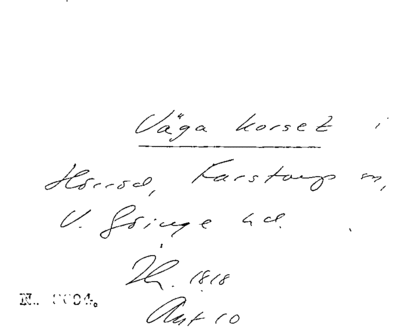 Våga korset i
Hörröd, Farstorp sn,
V. Göinge hd.
1818
Ant 10